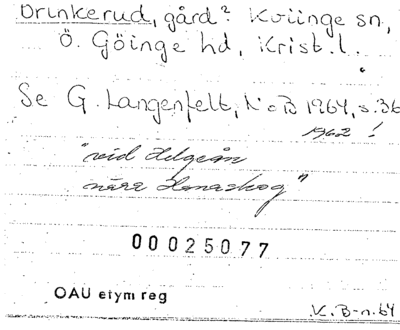 Drinkerud, gård? Kviinge sn,
Ö. Göinge hd, Krist. l.
Se G. Langenfelt, NoB 1964, s. 36
1962!
"vid Helgeån
nära Hanaskog"
00025077
OAU etym reg
K. B-n. 64